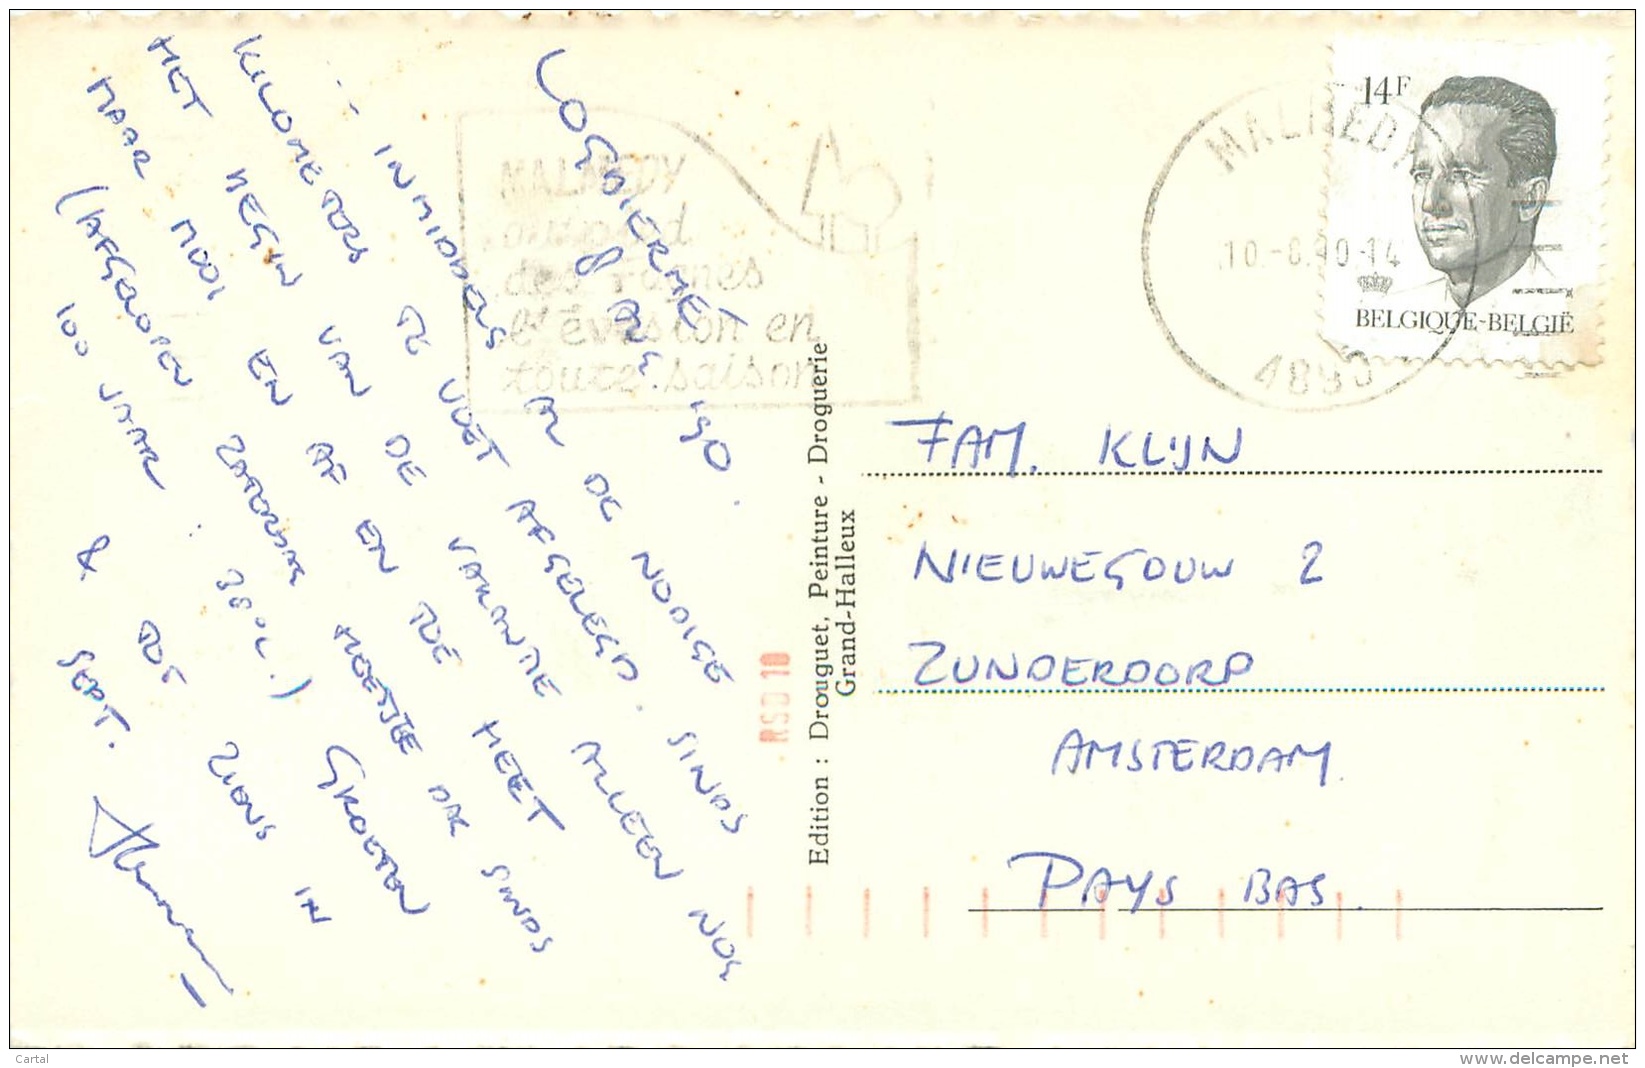 LOGBIERMÉ
8 AUG '90.
INMIDDELS AL DE NODIGE
KILOMETERS TE VOET AFGELEGD. SINDS
HET BEGIN VAN DE VAKANTIE ALLEEN NOG
MAAR MOOI EN AF EN TOE HEET
(AFGELOPEN ZATERDAG HEETSTE DAG SINDS
100 JAAR : 38°C.) GROETEN
& TOT ZIENS IN
SEPT.
MALMEDY
au pied
des Fagnes
l'évasion en
toute saison
Edition : Drouguet, Peinture - Droguerie
Grand-Halleux
RSD 10
MALMEDY
10.-8.90-14
4890
14F
BELGIQUE-BELGIË
FAM. KLIJN
NIEUWEGOUW 2
ZUNDERDORP
AMSTERDAM.
PAYS BAS.
Cartal
www.delcampe.net